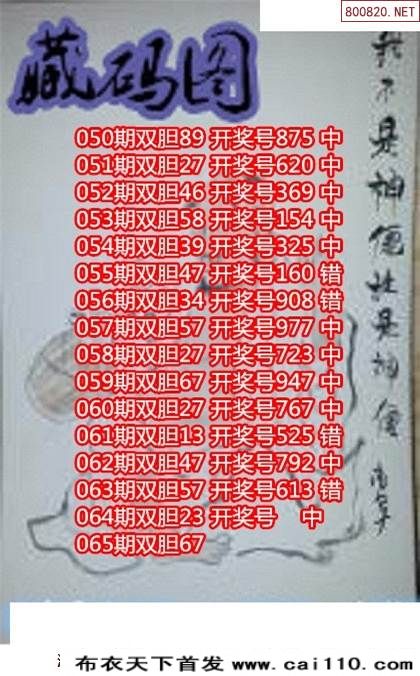 800820.NET
藏码图
050期双胆89 开奖号875 中
051期双胆27 开奖号620 中
052期双胆46 开奖号369 中
053期双胆58 开奖号154 中
054期双胆39 开奖号325 中
055期双胆47 开奖号160 错
056期双胆34 开奖号908 错
057期双胆57 开奖号977 中
058期双胆27 开奖号723 中
059期双胆67 开奖号947 中
060期双胆27 开奖号767 中
061期双胆13 开奖号525 错
062期双胆47 开奖号792 中
063期双胆57 开奖号613 错
064期双胆23 开奖号 中
065期双胆67
我不是神僊
是神僊
布衣天下首发 www.cai110.com